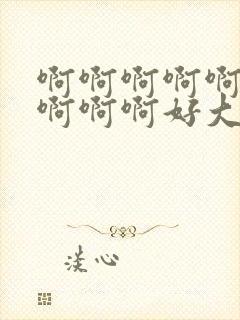 啊啊啊啊啊
啊啊啊好大
淡心